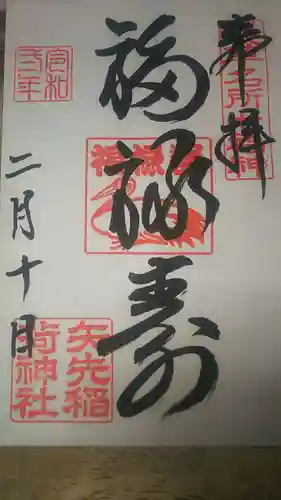 奉拝
福禄寿
福禄寿
令和
弐年
二月十日
矢先稲
荷神社